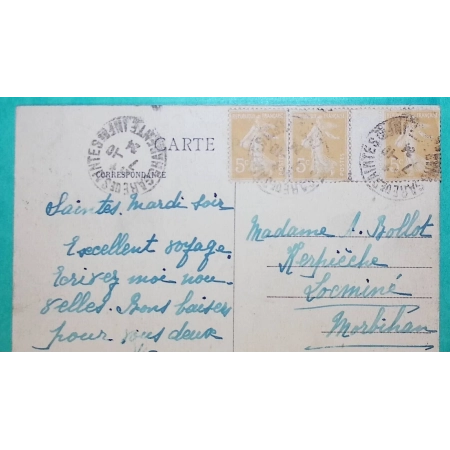 CARTE
CORRESPONDANCE
Saintes Mardi soir
Excellent voyage.
Ecrivez moi nou-
velles. Bons baisers
pour vous deux
Madame A. Bollot
Kerpièche
Locminé
Morbihan
5c